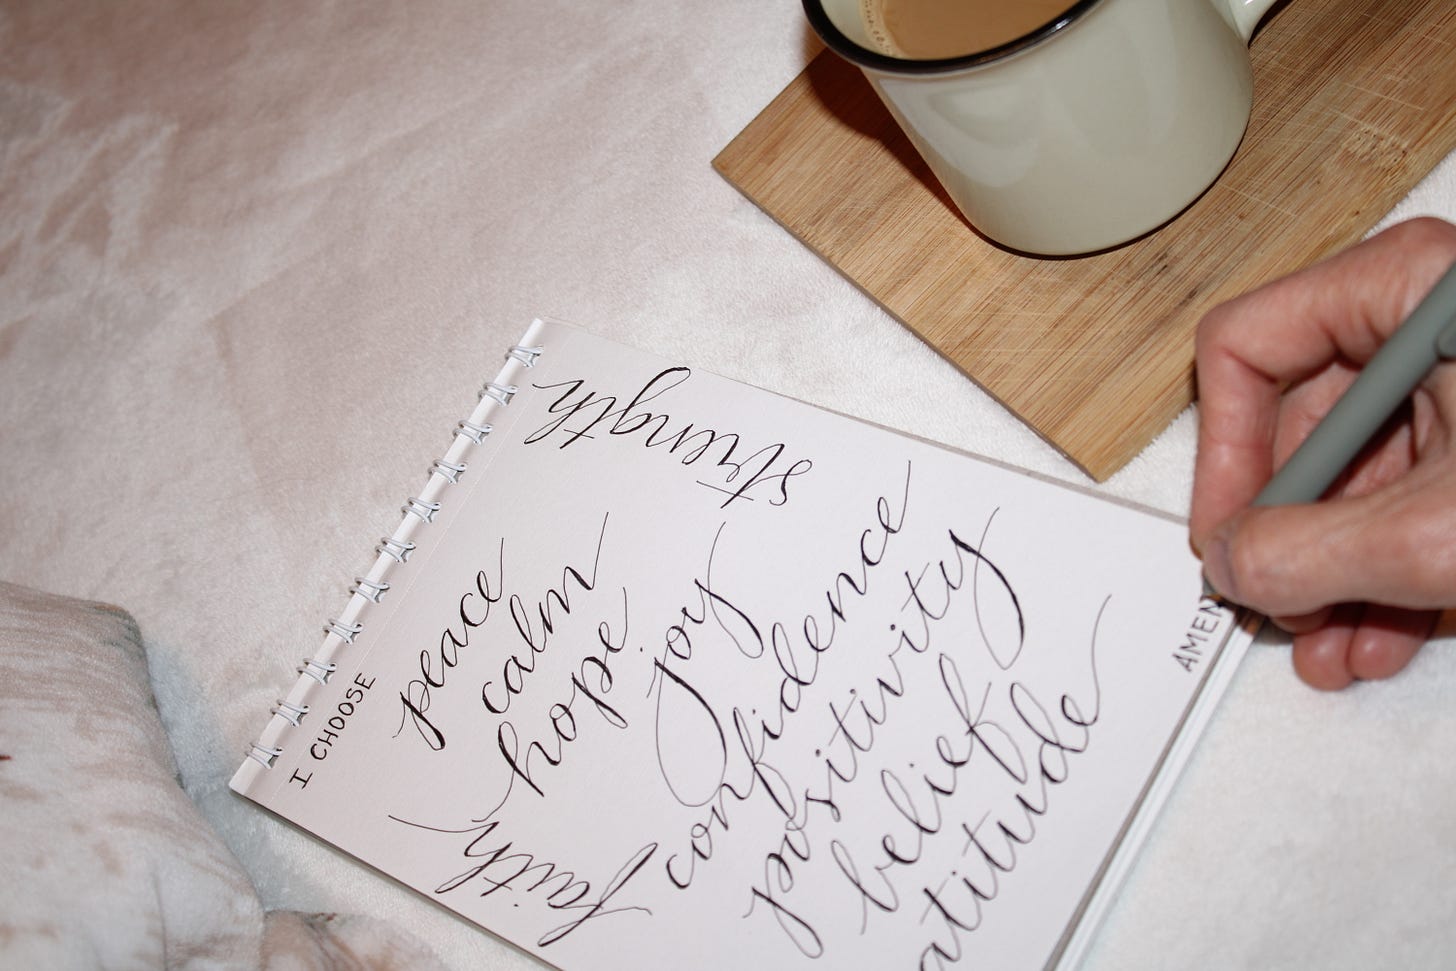 I CHOOSE
peace
calm
hope
joy
confidence
positivity
belief
atitude
strength
faith
AMEN